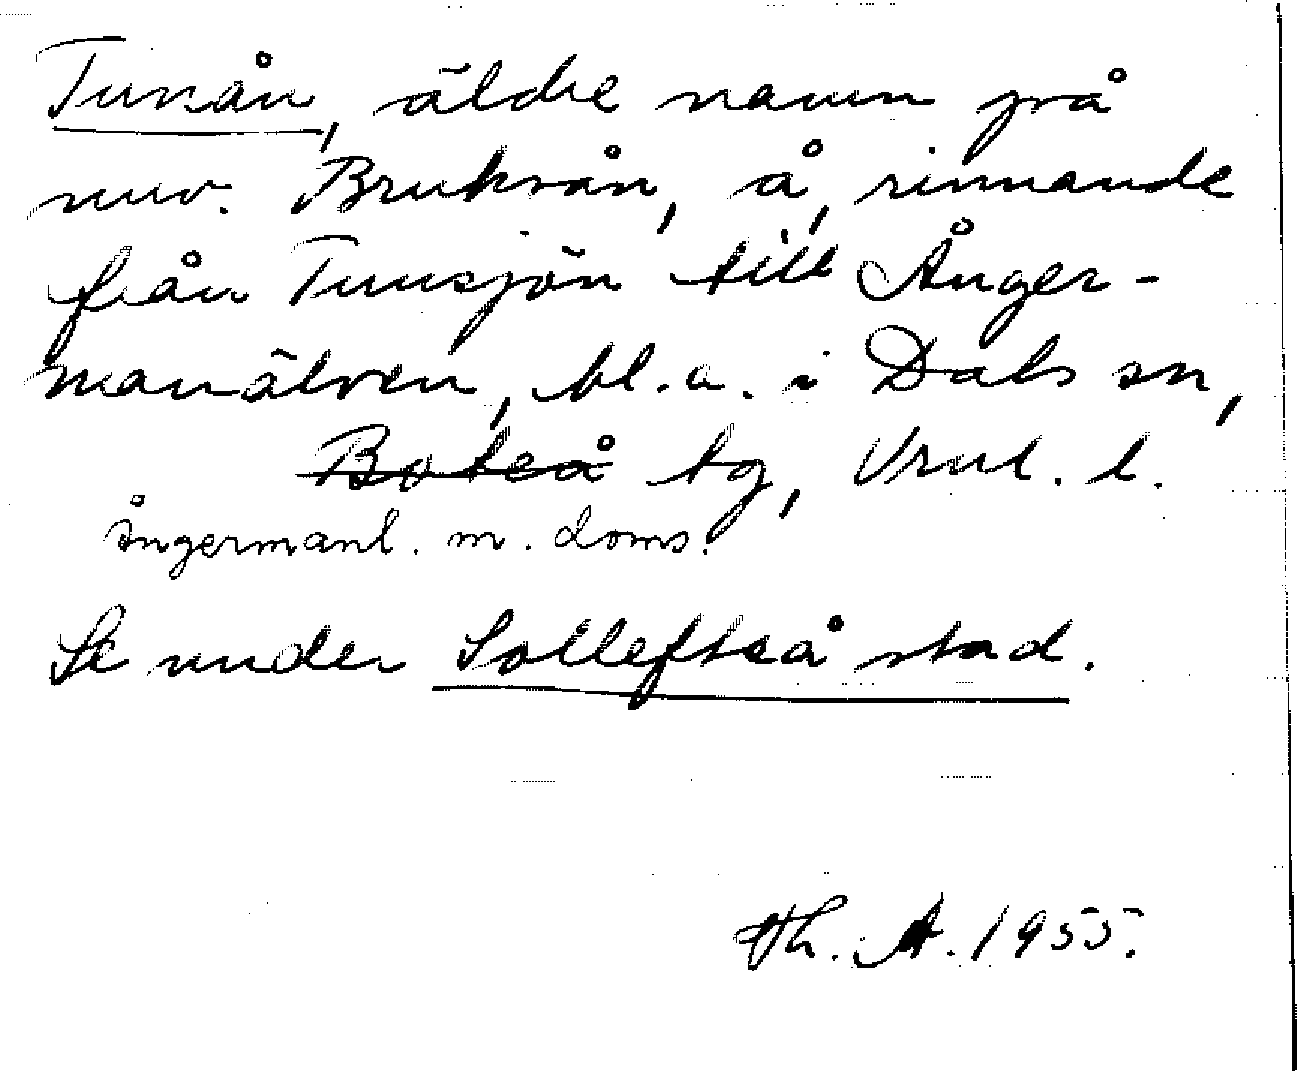 Tunån, äldre namn på
nuv. Bruksån, å, rinnande
från Tunsjön till Ånger-
manälven, bl.a. i Dals sn,
Boteå tg, Vrnl. l.
Ångermanl. m. doms.
Se under Sollefteå stad.
Th. A. 1955.